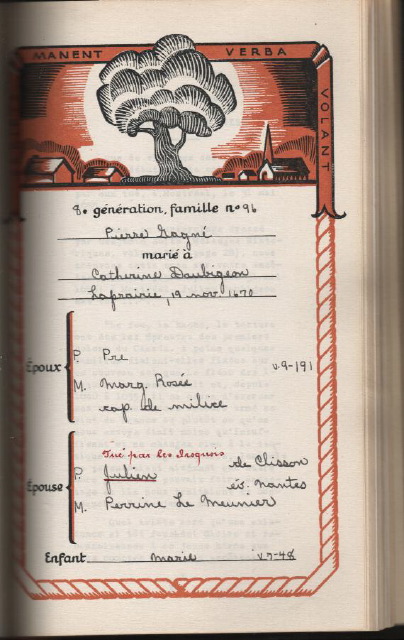 MANENT VERBA VOLANT
8e génération, famille no 96
Pierre Gagné
marié à
Catherine Daubigeon
Laprairie, 19 nov. 1670
Époux
P. Pre v.9-191
M. Marg. Rosée
cap. de milice
Tué par les Iroquois
Épouse
P. Julien de Clisson
év. Nantes
M. Perrine Le Meunier
Enfant Marie v.7-48